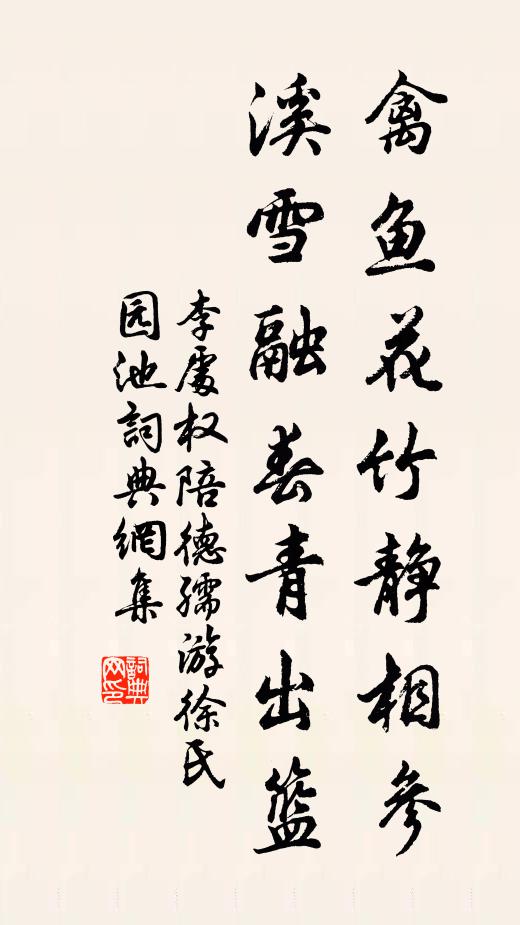 禽鱼花竹静相参
溪雪融春青出篮
李处权陪德孺游徐氏
园池詞典網集
詞典网印